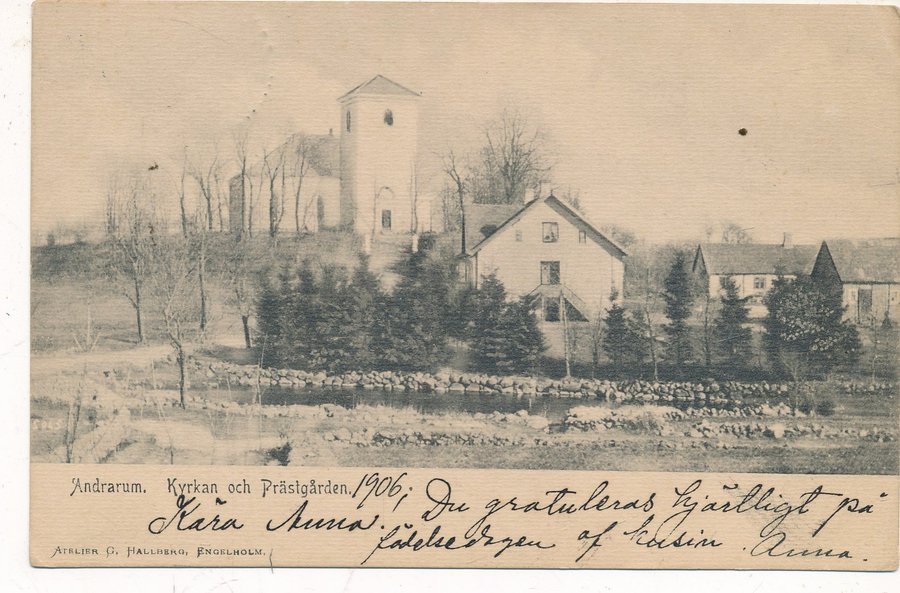 Andrarum. Kyrkan och Prästgården. 1906;
Kära Anna. Du gratuleras hjärtligt på
födelsedagen af kusin Anna.
ATELIER C. HALLBERG, ENGELHOLM.